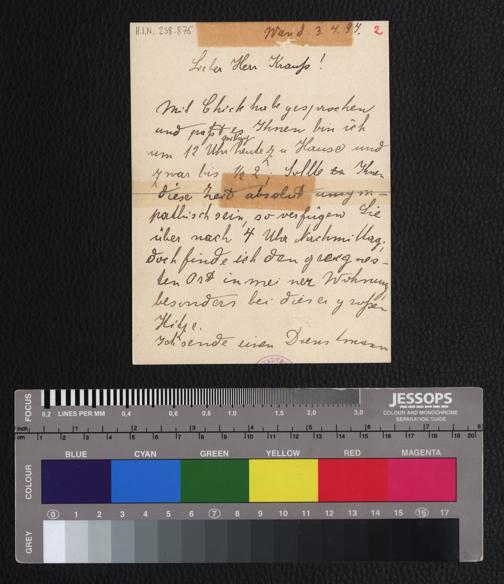 H.I.N. 238.876
Wand. 3. 7. 97. 2
Lieber Herr Krauss!
Mit Chick habe gesprochen
und paßt es Ihnen bin ich
um 12 Uhr heute z u Hause und
zwar bis 1/2 2, Sollte Ihnen
diese Zeit absolut unsym-
pathisch sein, so verfügen Sie
über nach 4 Uhr Nachmittag,
doch finde ich den geeignes-
ten Ort in mei ner Wohnung
besonders bei dieser großen
Hitze.
Ich sende einen Dienstmann
FOCUS
0,2 LINES PER MM 0,4 0,6 0,8 1,0 1,5 2,0 3,0
JESSOPS
COLOUR AND MONOCHROME
SEPARATION GUIDE
inch 1 2 3 4 5 6 7 8
cm 1 2 3 4 5 6 7 8 9 10 11 12 13 14 15 16 17 18 19 20
COLOUR
BLUE CYAN GREEN YELLOW RED MAGENTA
GREY
0 1 2 3 4 5 6 7 8 9 10 11 12 13 14 15 16 17